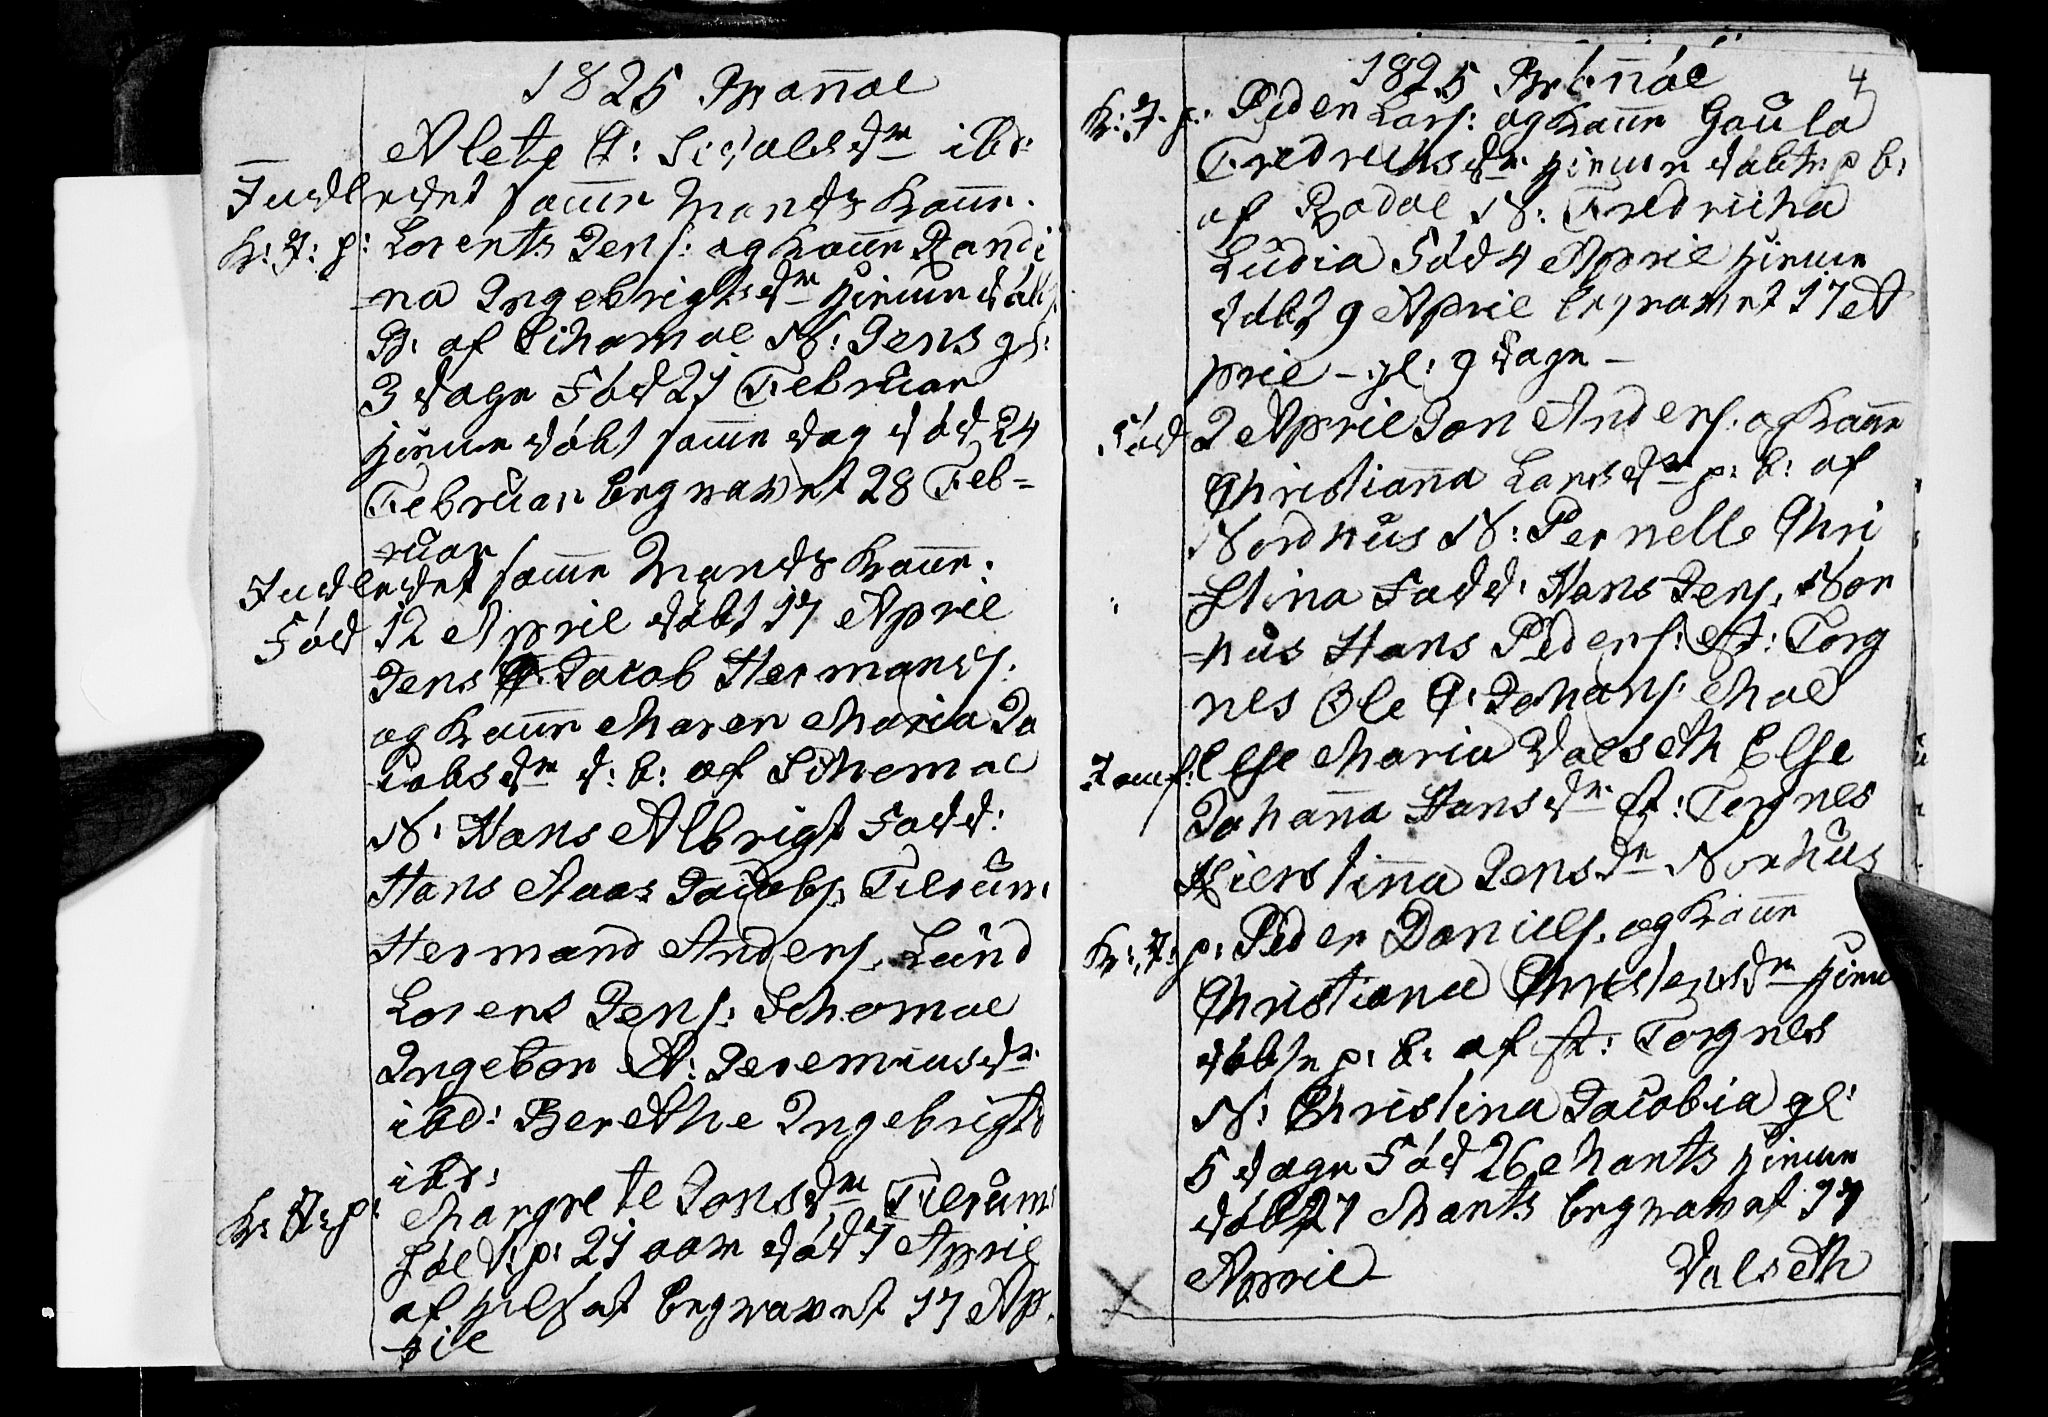 1825 Brønnøe
Alete A: Sivalds Dtr ibd:
Indledet samme Mands Kaane.
K: J: p: Lorents Jens: og Kaane Randi
=na Ingebrigts Dtr hieme døbt
B: af Sihomoe N: Jens gl:
3 dage Fød 21 Februar
hieme døbt samme dag død 24
Februar begravet 28 Feb=
=ruar
Indledet samme Mands Kaane.
Fød 12 April døbt 17 April
Jens Jacob Hermands:
og Kaane Maren Maria Ja
cobs Dtr d: b: af Sihomoe
N: Hans Albrigt Fadd:
Hans Aaas Jacobs: Tilrum
Hermand Anders: Lund
Lorens Jens: Sihomoe
Ingebor A: Jeremias Dtr
ibd: Berethe Ingebrigts
ibd:
K: J: p: Margrete Jons Dtr Tilrum
p: 21 aar død 7 April
af begravet 17 Ap-
ril
1825 Brønnøe 4
K: J: p: Peder Lars: og Kaane Gaula
Fredrichs Dtr hieme døbte p b:
af N: Fredricha
Ludia Fød 4 April hieme
døbt 9 April begravet 17 A
pril - gl: 9 dage -
Fød 2 April Jon Anders: og Kaane
Christianna Lars Dtr p: b: af
Nordhus N: Pernelle Chri
=stina Fadd: Hans Jens: Nor
=hus Hans Peders: St: Torg
nes Ole C: Johans: Moe
Jomf: Else Maria Valseth Else
Johanna Hans Dtr St: Torgnes
Kierstinna Jens Dtr Norhus
K: J: p: Peder Daniels: og Kaane
Christiana Christens Dtr hieme
døbte p: b: af St: Torgnes
N: Christina Jacobia gl:
5 dage Fød 26 Marts hieme
døbt 27 Marts begravet 17
April Valseth